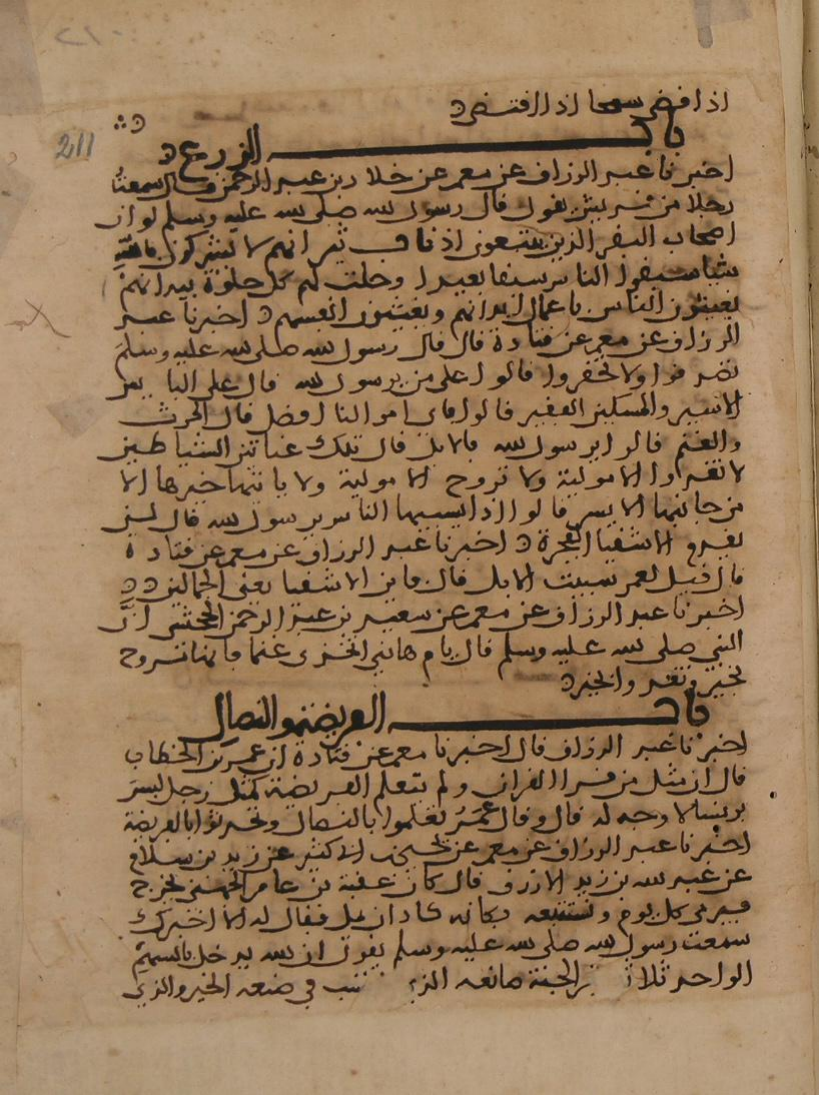 اذا قضى سمحا اذا اقتضى
211
باب الزرع
اخبرنا عبد الرزاق عن معمر عن خلاد بن عبد الرحمن قال سمعت
رجلا من قريش يقول قال رسول الله صلى الله عليه وسلم لو ان
اصحاب البقر الذين يتبعون اذناب بقرانهم لا يشركون بالله
شيا سبقوا الناس سبقا بعيدا وحلت لهم كل حلوة بيد انهم
يعيشون الناس باعمال ابدانهم ويغيثون انفسهم اخبرنا عبد
الرزاق عن معمر عن قتادة قال قال رسول الله صلى الله عليه وسلم
تصدقوا ولا تحقروا قالوا على من يرسول الله قال على
الاسير والمسكين الفقير قالوا فاي اموالنا افضل قال الحرث
والغنم قالوا يرسول الله فالابل قال تلك عناتن الشياطين
لا تغدوا الا مولية ولا تروح الا مولية ولا ياتيها خيرها الا
من جانبها الايسر قالوا اذا يسيبها الناس يرسول الله قال لن
يعدم الاشقيا الفجرة اخبرنا عبد الرزاق عن معمر عن قتادة
قال قيل لعمر سيبت الابل قال فاين الاشقيا يعني الجمالين
اخبرنا عبد الرزاق عن معمر عن سعيد بن عبد الرحمن الجحشي ان
النبي صلى الله عليه وسلم قال يام هاني اتخذي غنما فانها تروح
بخير وتغدوا بخير
باب الفريضة والنضال
اخبرنا عبد الرزاق قال اخبرنا معمر عن قتادة ان عمر بن الخطاب
قال ان مثل من قرا القران ولم يتعلم الفريضة كمثل رجل لبس
برنسا لا وجه له قال وقال عمر تعلموا بالنضال وتحدثوا بالفريضة
اخبرنا عبد الرزاق عن معمر عن يحيى بن ابي كثير عن زيد بن سلام
عن عبد الله بن زيد الازرق قال كان عقبة بن عامر الجهني يخرج
فيرمي كل يوم ويستتبعه فكانه كاد ان يمل فقال له الا اخبرك
سمعت رسول الله صلى الله عليه وسلم يقول ان الله يدخل بالسهم
الواحد ثلاثة الجنة صانعه الذي يحتسب في صنعه الخير والذي